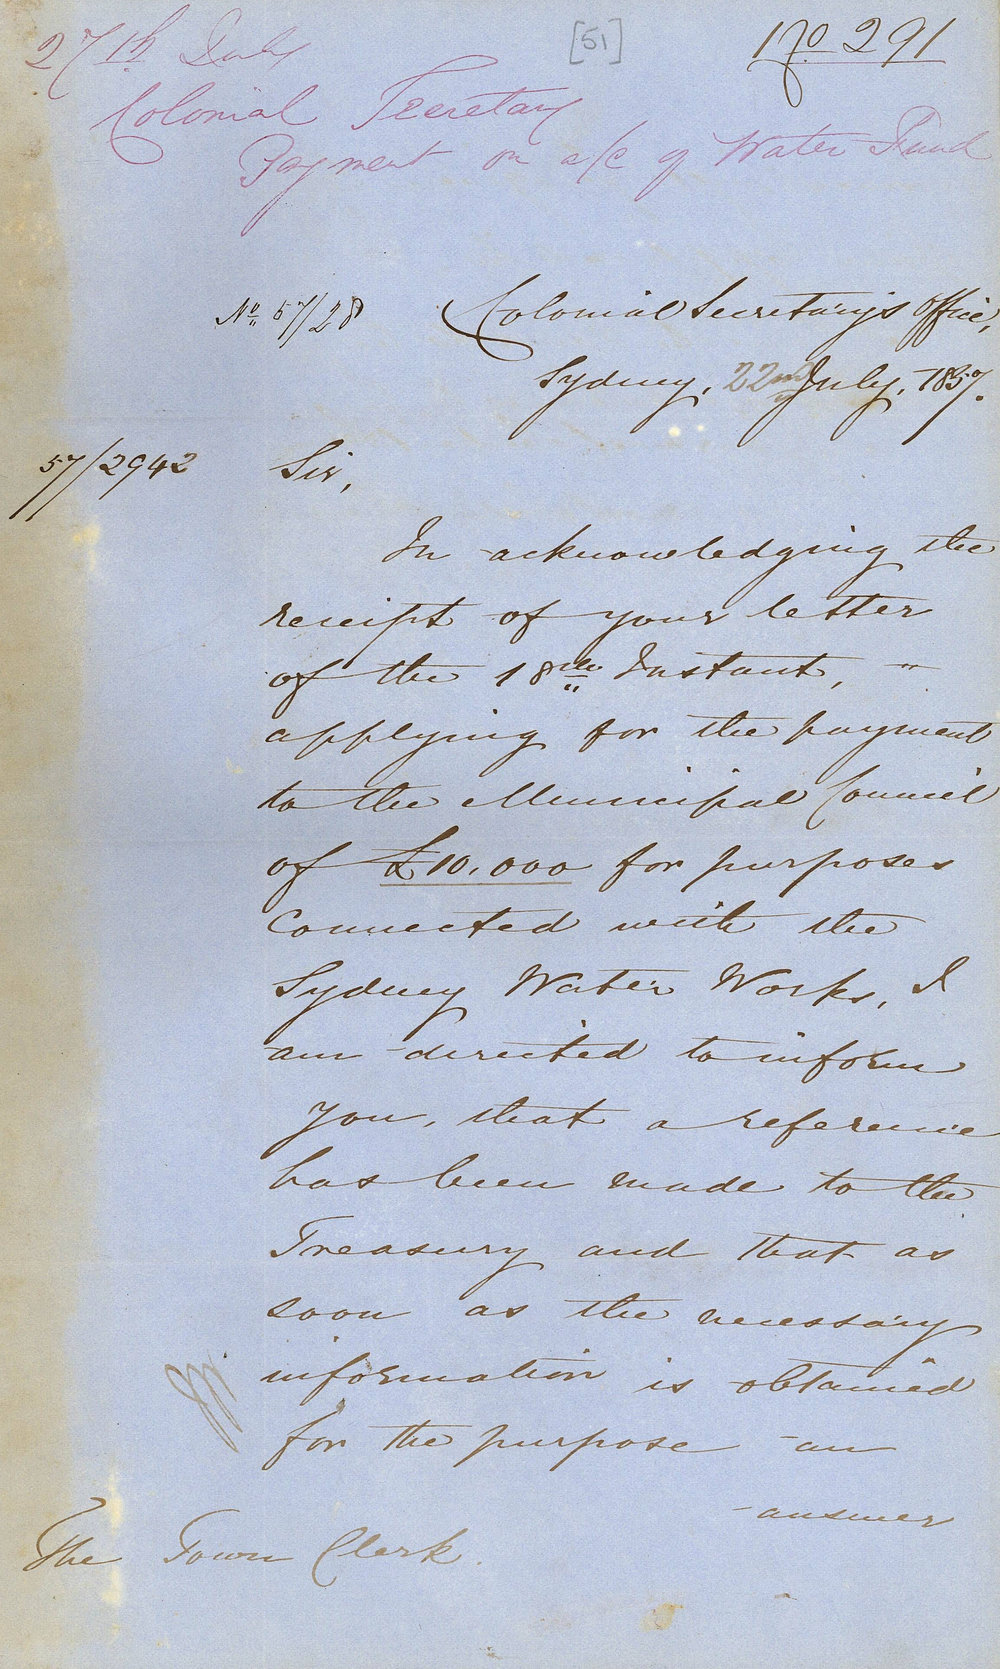 27th July
[51]
No 291
Colonial Secretary
Payment on a/c of Water Fund
No 57/28
Colonial Secretary's Office,
Sydney, 22nd July, 1857.
57/2942
Sir,
In acknowledging the
receipt of your letter
of the 18th Instant,
applying for the payment
to the Municipal Council
of £10,000 for purposes
connected with the
Sydney Water Works, I
am directed to inform
you, that a reference
has been made to the
Treasury and that as
soon as the necessary
information is obtained
for the purpose an
answer
The Town Clerk.